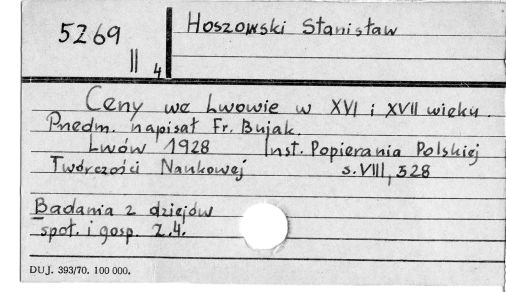 5269
II 4
Hoszowski Stanisław
Ceny we Lwowie w XVI i XVII wieku.
Przedm. napisał Fr. Bujak.
Lwów 1928 Inst. Popierania Polskiej
Twórczości Naukowej s. VIII, 328
Badania z dziejów
społ. i gosp. Z.4.
DUJ. 393/70. 100 000.